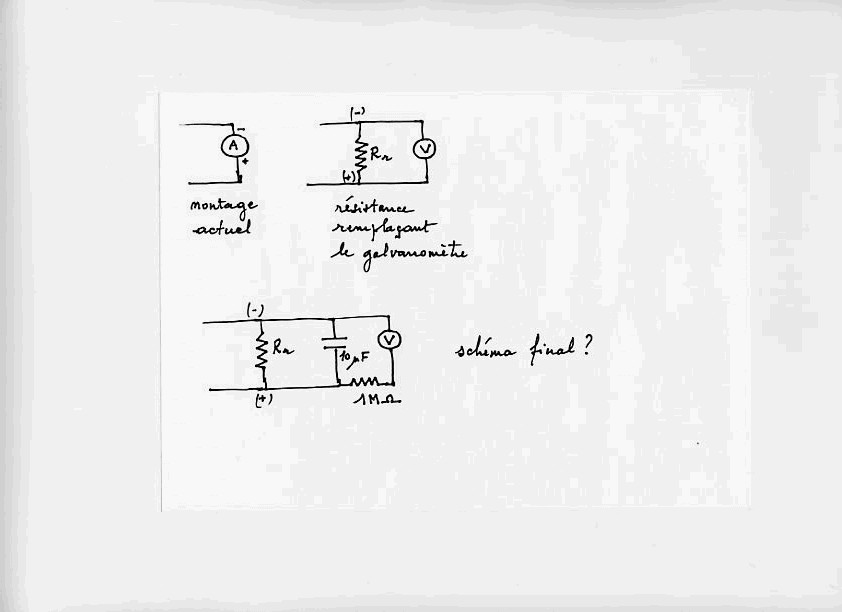 (-)
-
A
+
Rr
V
(+)
montage
actuel
résistance
remplaçant
le galvanomètre
(-)
Rr
10 µF
V
schéma final ?
(+)
1MΩ